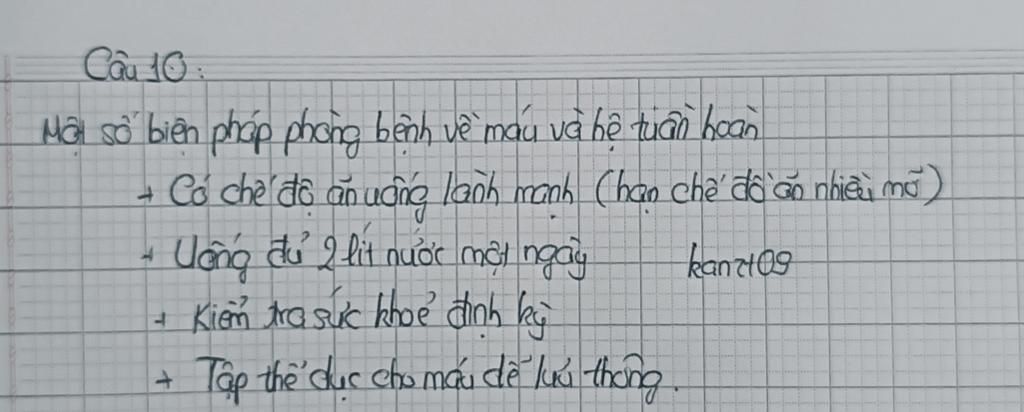 Câu 10:
Một số biện pháp phòng bệnh về máu và hệ tuần hoàn
+ Có chế độ ăn uống lành mạnh (hạn chế đồ ăn nhiều mỡ)
+ Uống đủ 2 lít nước một ngày kanzt09
+ Kiểm tra sức khoẻ định kỳ
+ Tập thể dục cho máu dễ lưu thông.